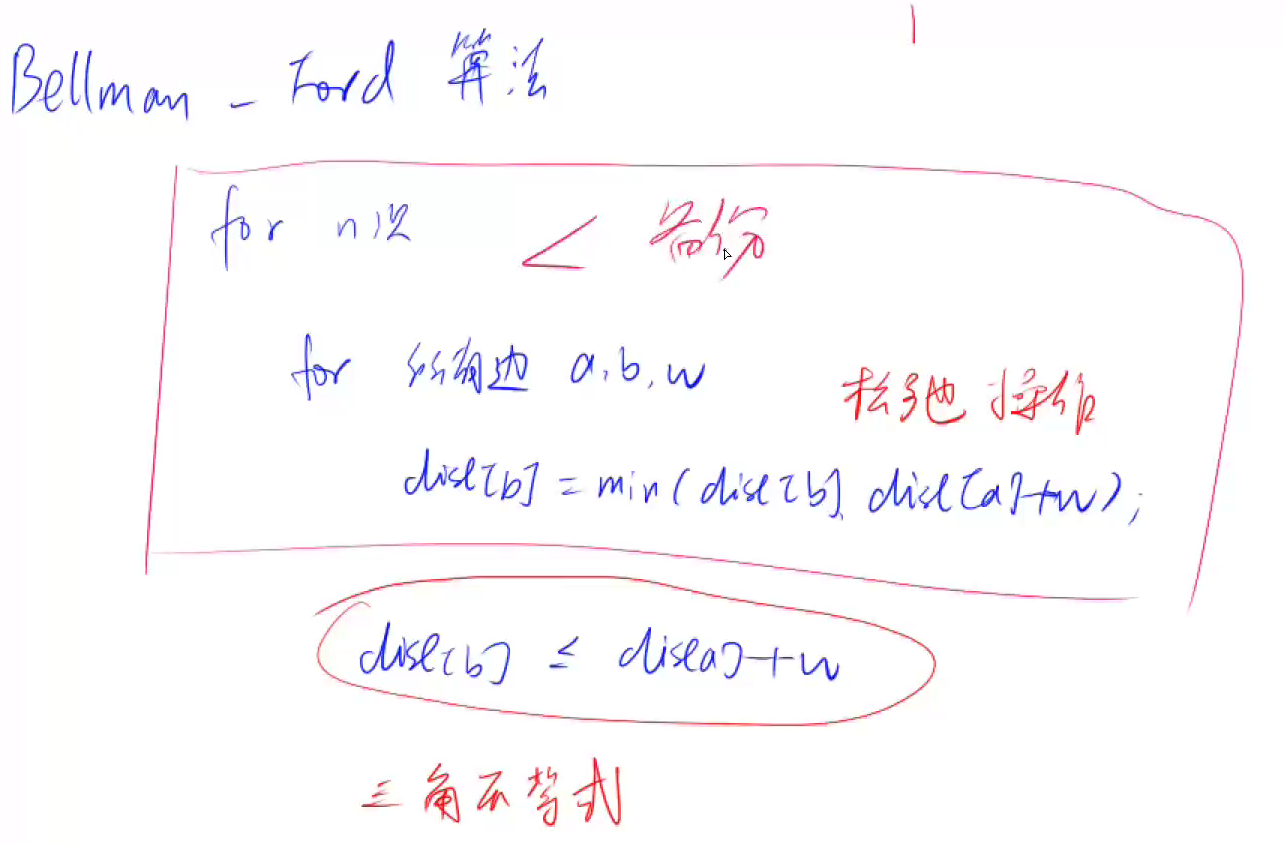 Bellman - Ford 算法
for n次 < 备份
for 所有边 a,b,w
松弛操作
dist[b] = min(dist[b], dist[a]+w);
dist[b] ≤ dist[a]+w
三角不等式